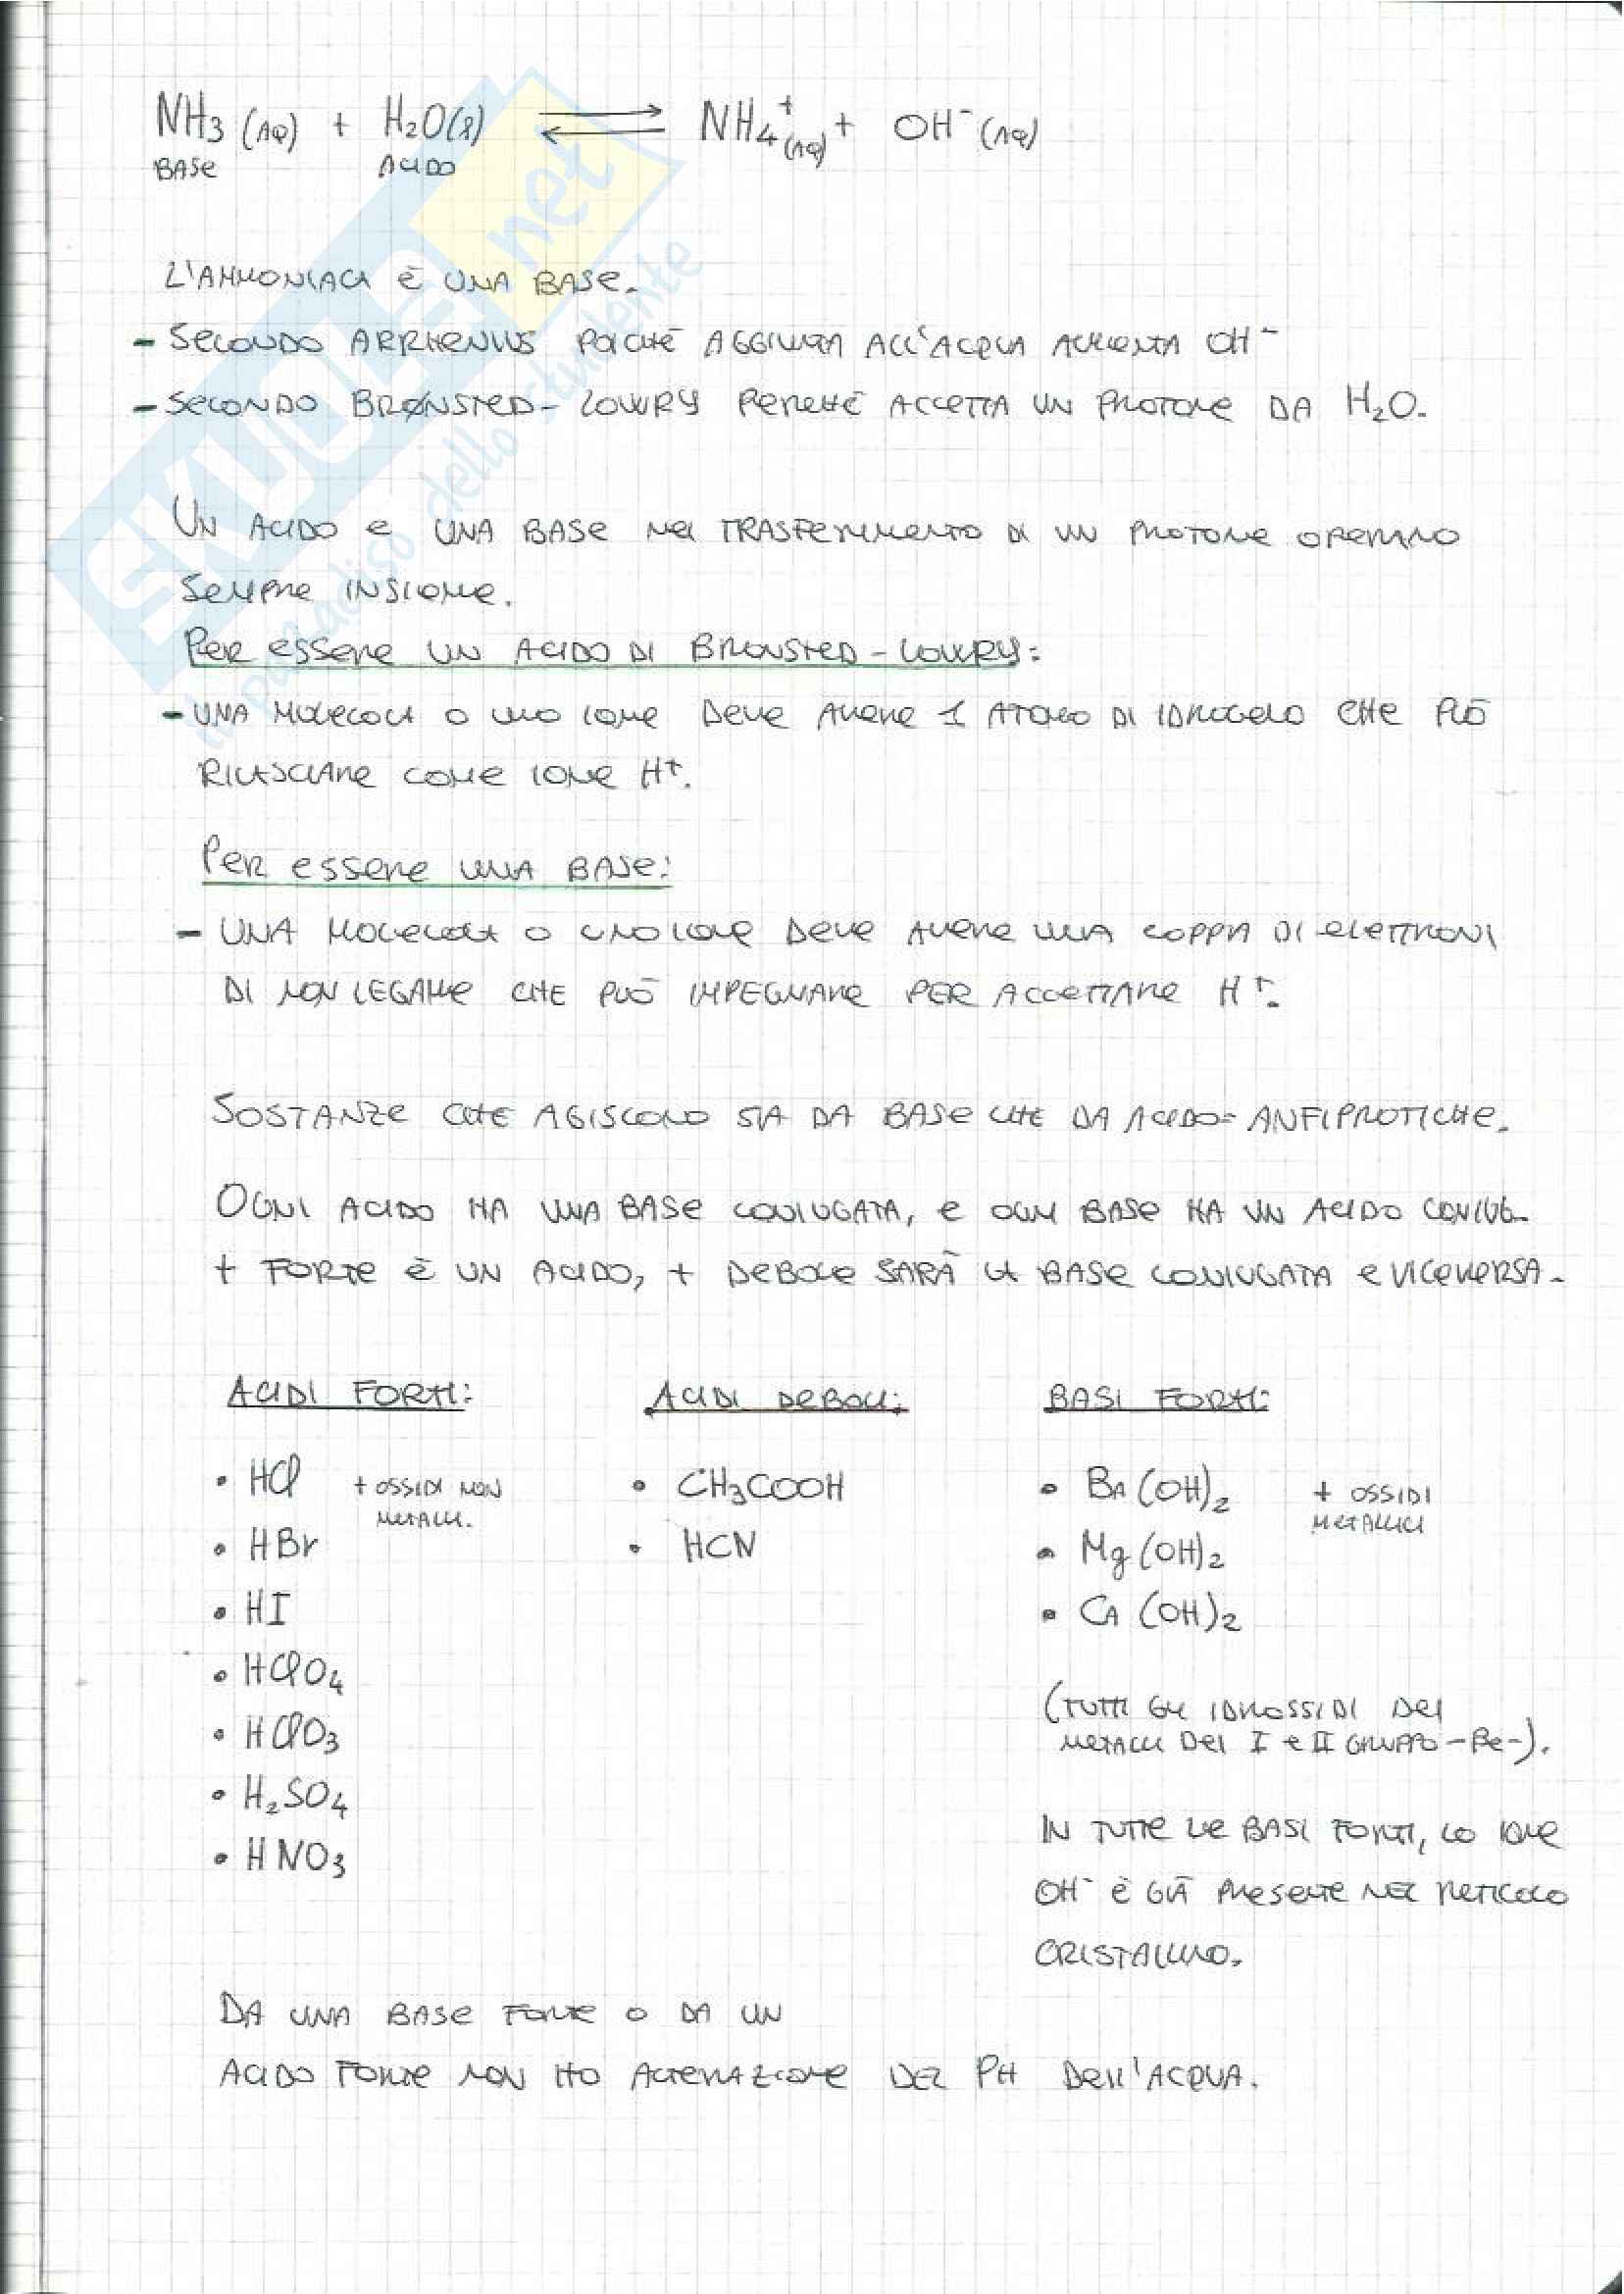 NH3 (AQ) + H2O(l) ⇌ NH4+ (AQ) + OH- (AQ)
BASE ACIDO
L'AMMONIACA È UNA BASE.
- SECONDO ARRHENIUS POICHÈ AGGIUNTA ALL'ACQUA AUMENTA OH-
- SECONDO BRØNSTED-LOWRY PERCHÈ ACCETTA UN PROTONE DA H2O.
UN ACIDO E UNA BASE NEL TRASFERIMENTO DI UN PROTONE OPERANO
SEMPRE INSIEME.
PER ESSERE UN ACIDO DI BRONSTED-LOWRY:
- UNA MOLECOLA O UNO IONE DEVE AVERE 1 ATOMO DI IDROGENO CHE PUÒ
RILASCIARE COME IONE H+.
PER ESSERE UNA BASE:
- UNA MOLECOLA O UNO IONE DEVE AVERE UNA COPPIA DI ELETTRONI
DI NON LEGAME CHE PUÒ IMPEGNARE PER ACCETTARE H+.
SOSTANZE CHE AGISCONO SIA DA BASE CHE DA ACIDO= ANFIPROTICHE.
OGNI ACIDO HA UNA BASE CONIUGATA, E OGNI BASE HA UN ACIDO CONIUG.
+ FORTE È UN ACIDO, + DEBOLE SARÀ LA BASE CONIUGATA E VICEVERSA.
ACIDI FORTI: ACIDI DEBOLI: BASI FORTI:
• HCl + OSSIDI NON • CH3COOH • BA(OH)2 + OSSIDI
METALLI. METALLICI
• HBr • HCN • Mg(OH)2
• HI • CA(OH)2
• HClO4
(TUTTI GLI IDROSSIDI DEI
• HClO3 METALLI DEL I E II GRUPPO -Be-).
• H2SO4
IN TUTTE LE BASI FORTI, LO IONE
• HNO3
OH- È GIÀ PRESENTE NEL RETICOLO
CRISTALLINO.
DA UNA BASE FORTE O DA UN
ACIDO FORTE NON HO ALTERAZIONE DEL PH DELL'ACQUA.
SKUOLA.net
il paradiso dello studente